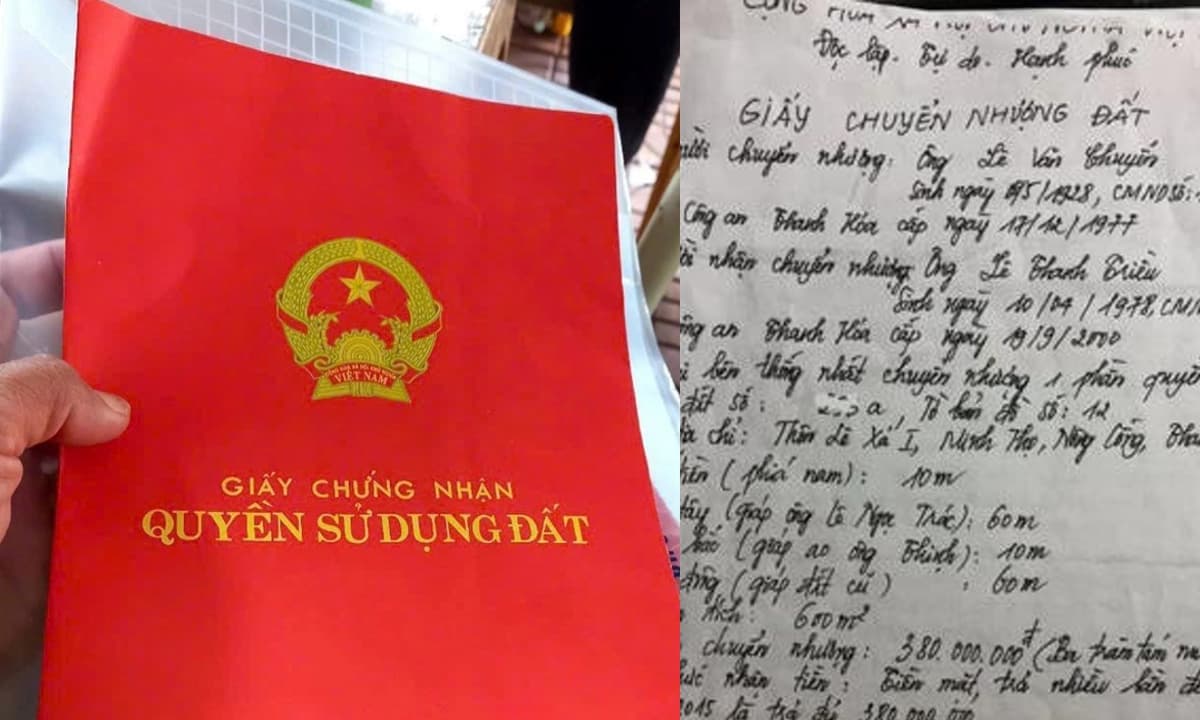 CỘNG HÒA XÃ HỘI CHỦ NGHĨA VIỆT
VIỆT NAM
GIẤY CHỨNG NHẬN
QUYỀN SỬ DỤNG ĐẤT
Độc lập. Tự do. Hạnh phúc
GIẤY CHUYỂN NHƯỢNG ĐẤT
chuyển nhượng: Ông Lê Văn Chuyến
Sinh ngày 0/5/1928, CMND Số:
Công an Thanh Hóa cấp ngày 17/12/1977
nhận chuyển nhượng Ông Lê Thanh Triều
Sinh ngày 10/04/1978, CMN
an Thanh Hóa cấp ngày 19/9/2000
bên thống nhất chuyển nhượng 1 phần quyền
đất số: a, Tờ bản đồ số: 12
chỉ: Thôn Lê Xá I, Minh Thọ, Nông Cống, Tha
(phía nam): 10m
(giáp ông Lê Ngọc Trác): 60m
bắc (giáp ao ông Thịnh): 10m
(giáp đất cũ) : 60m
tích: 600m²
chuyển nhượng: 380.000.000đ (Ba trăm tám m
nhận tiền: Tiền mặt, trả nhiều lần
2015 là trả đủ 380.000.000